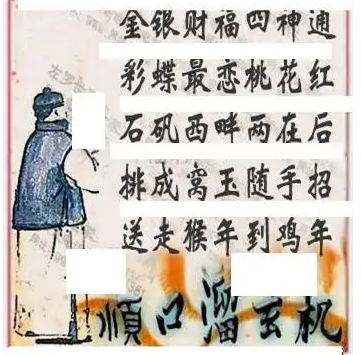 金银财福四神通
彩蝶最恋桃花红
石矶西畔两在后
排成窝玉随手招
送走猴年到鸡年
順口溜玄机